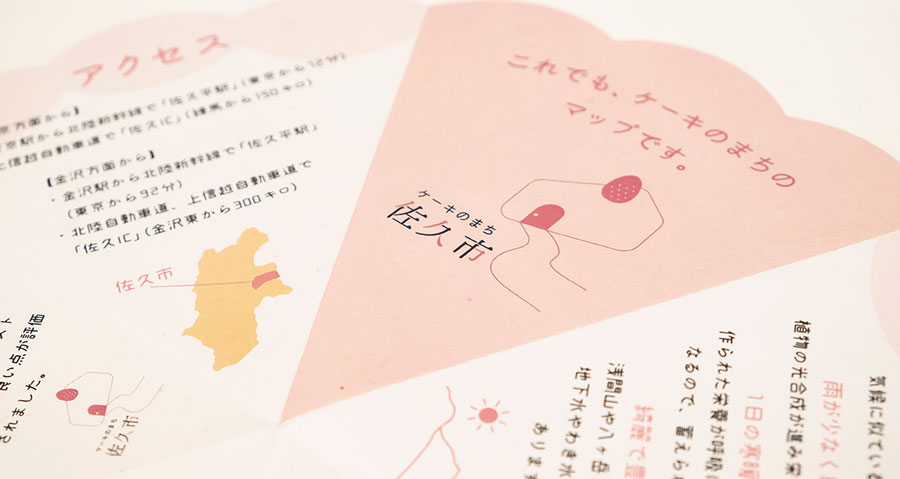 アクセス
京方面から】
京駅から北陸新幹線で「佐久平駅」(東京から72分)
上信越自動車道で「佐久IC」(練馬から150キロ)
【金沢方面から】
・金沢駅から北陸新幹線で「佐久平駅」
(東京から92分)
・北陸自動車道、上信越自動車道で
「佐久IC」(金沢東から300キロ)
佐久市
これでも、ケーキのまちの
マップです。
ケーキのまち
佐久市
スト
良い点が評価
されました。
ケーキのまち
佐久市
気候に似ている
雨が少なく
植物の光合成が進み栄
1日の寒暖
作られた栄養が呼吸
なるので、蓄えられ
綺麗で豊
浅間山や八ヶ岳
地下水やわき水
あります